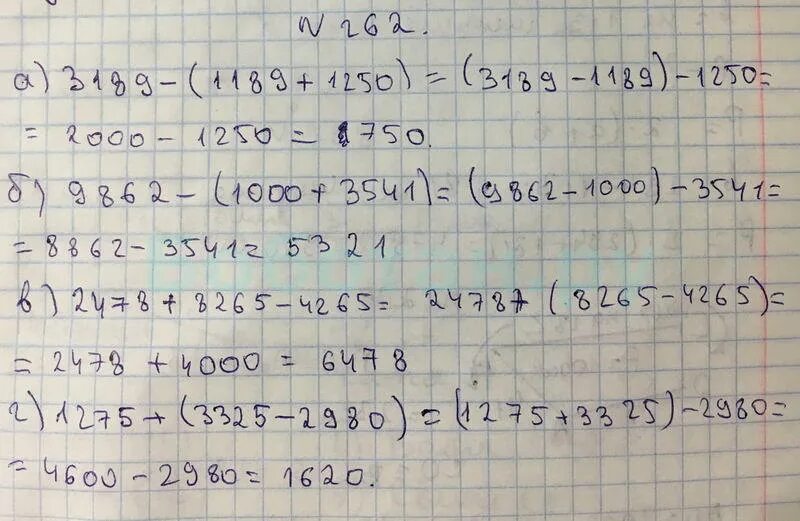 N 262.
а) 3189 - (1189 + 1250) = (3189 - 1189) - 1250 =
= 2000 - 1250 = 750.
б) 9862 - (1000 + 3541) = (9862 - 1000) - 3541 =
= 8862 - 3541 = 5321
в) 2478 + 8265 - 4265 = 2478 + (8265 - 4265) =
= 2478 + 4000 = 6478
г) 1275 + (3325 - 2980) = (1275 + 3325) - 2980 =
= 4600 - 2980 = 1620.